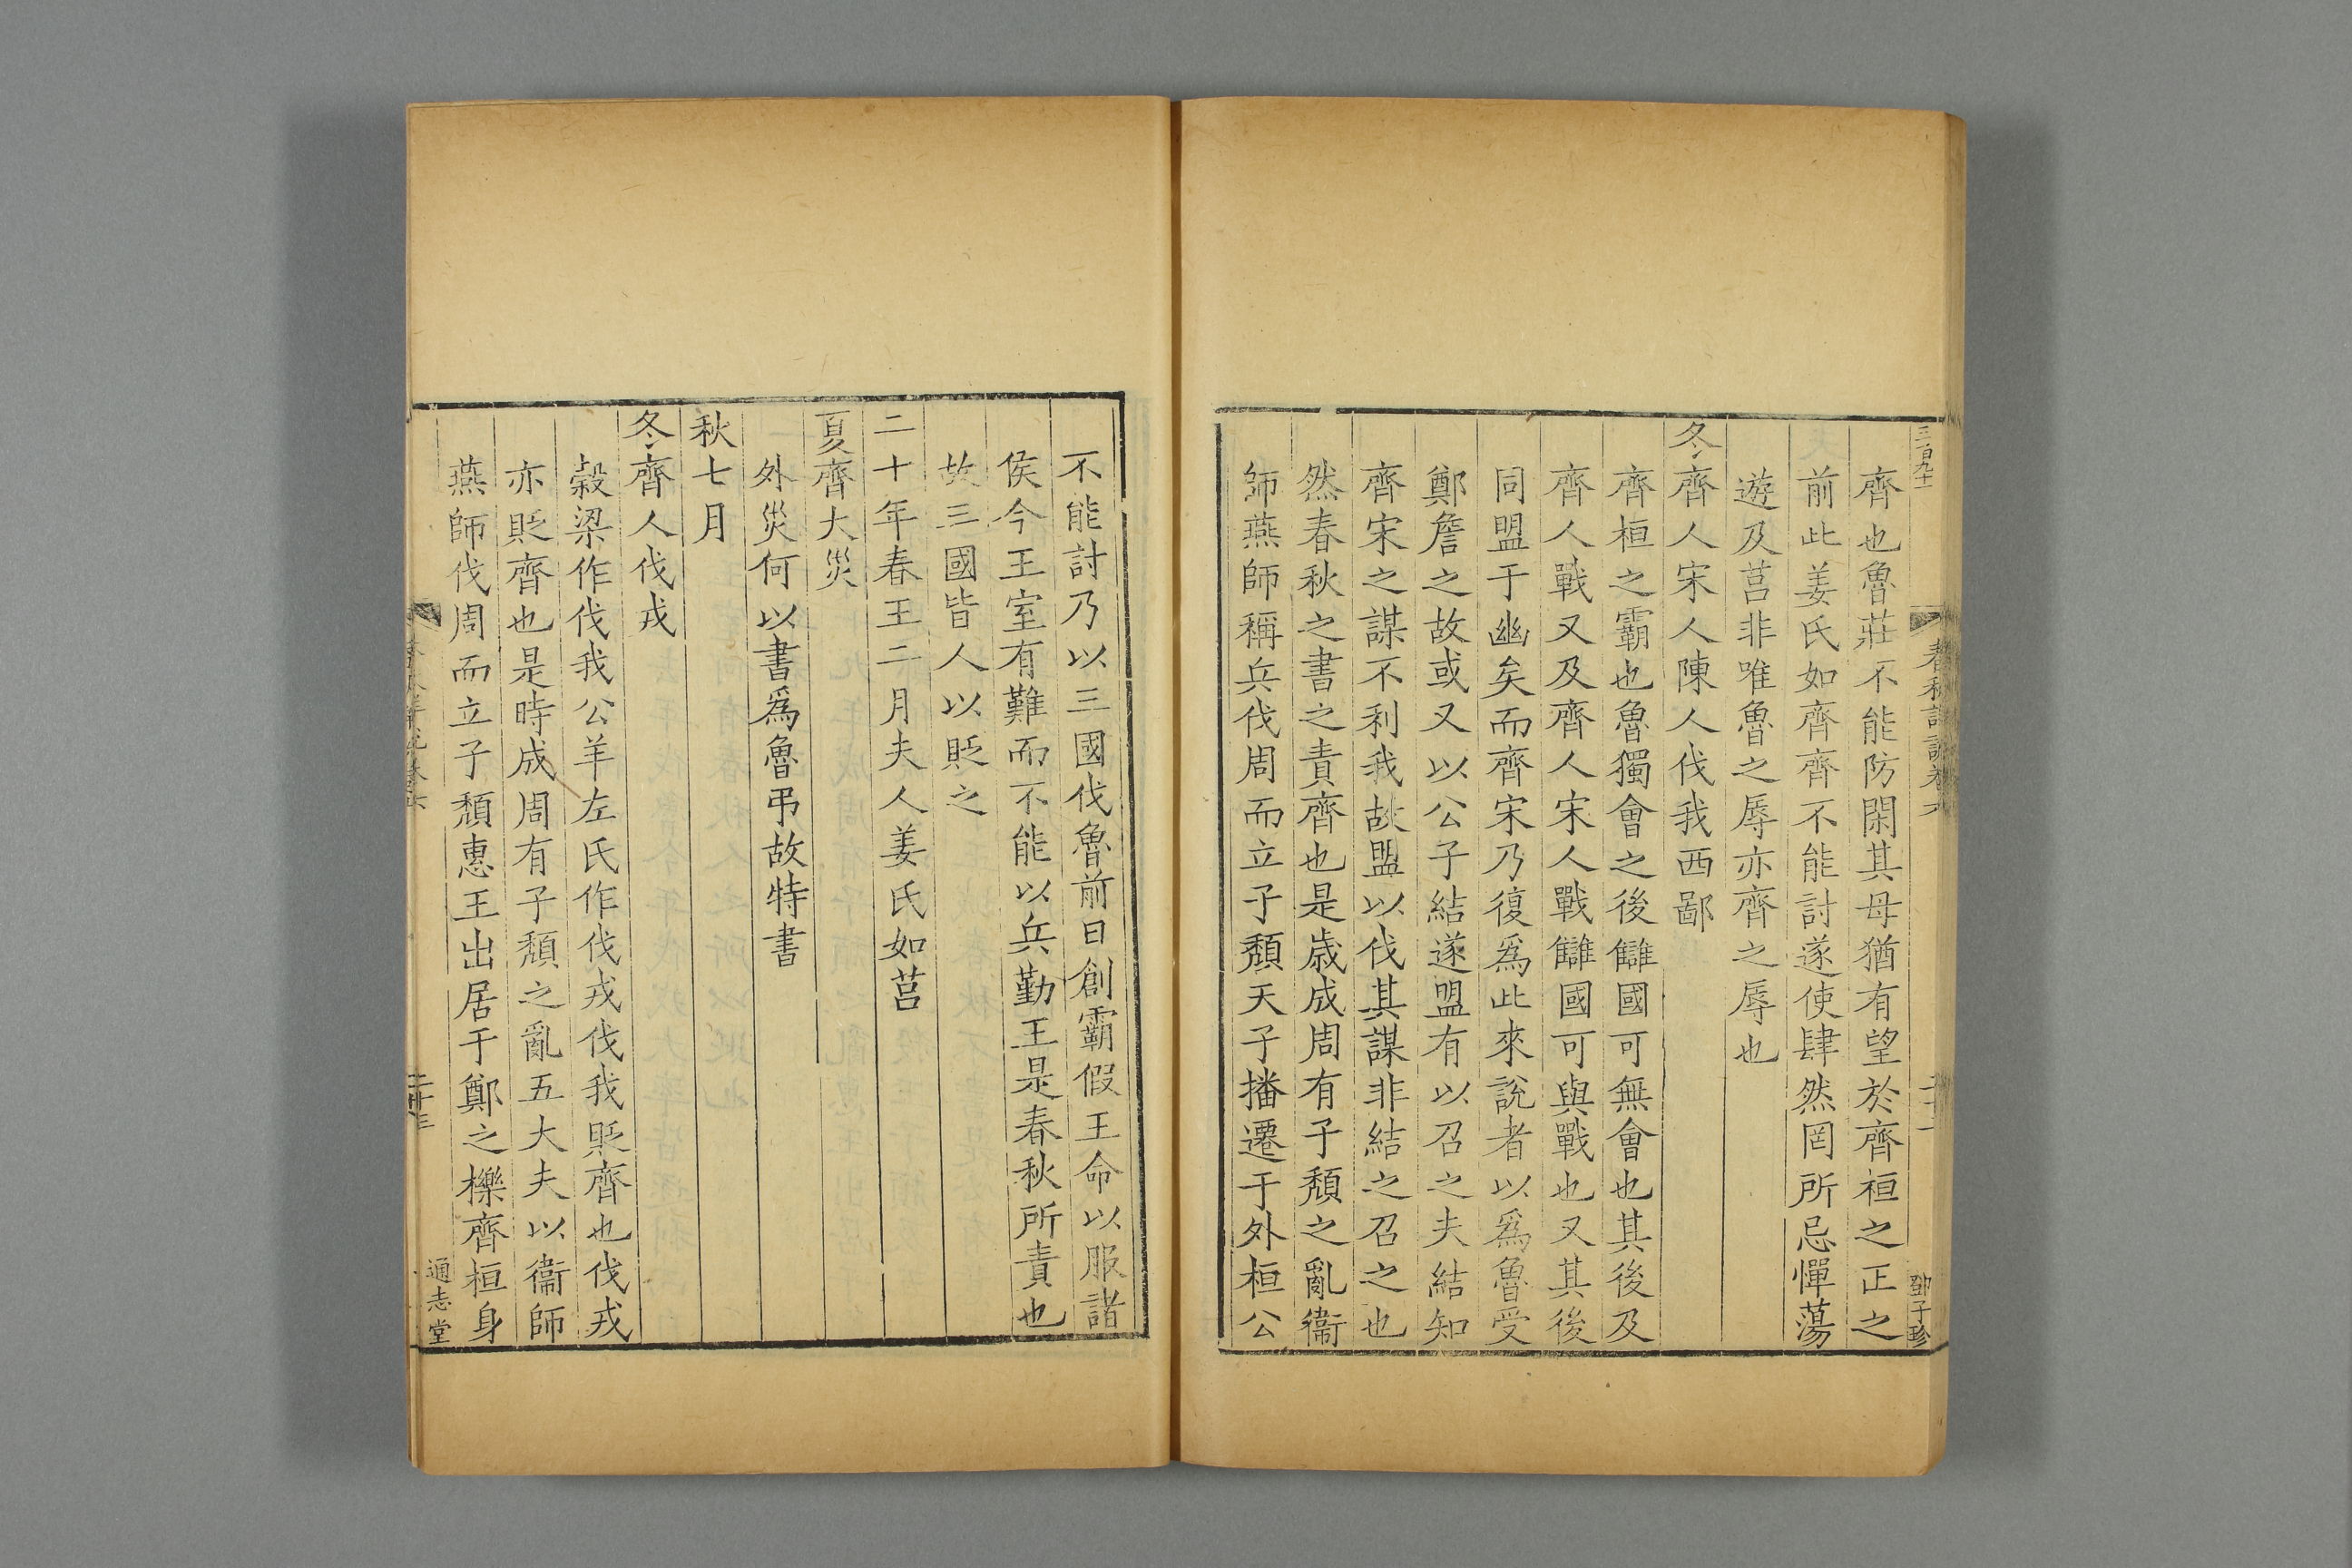 三百九十一
春秋詳說卷六
二十二
鄧子珍
齊也魯莊不能防閑其母猶有望於齊桓之正之
前此姜氏如齊齊不能討遂使肆然罔所忌憚蕩
遊及莒非唯魯之辱亦齊之辱也
冬齊人宋人陳人伐我西鄙
齊桓之霸也魯獨會之後讎國可無會也其後及
齊人戰又及齊人宋人戰讎國可與戰也又其後
同盟于幽矣而齊宋乃復爲此來說者以爲魯受
鄭詹之故或又以公子結遂盟有以召之夫結知
齊宋之謀不利我故盟以伐其謀非結之召之也
然春秋之書之責齊也是歲成周有子頹之亂衞
師燕師稱兵伐周而立子頹天子播遷于外桓公
不能討乃以三國伐魯前日創霸假王命以服諸
侯今王室有難而不能以兵勤王是春秋所責也
故三國皆人以貶之
二十年春王二月夫人姜氏如莒
夏齊大災
外災何以書爲魯弔故特書
秋七月
冬齊人伐戎
穀梁作伐我公羊左氏作伐戎伐我貶齊也伐戎
亦貶齊也是時成周有子頹之亂五大夫以衞師
燕師伐周而立子頹惠王出居于鄭之櫟齊桓身
二十三
通志堂